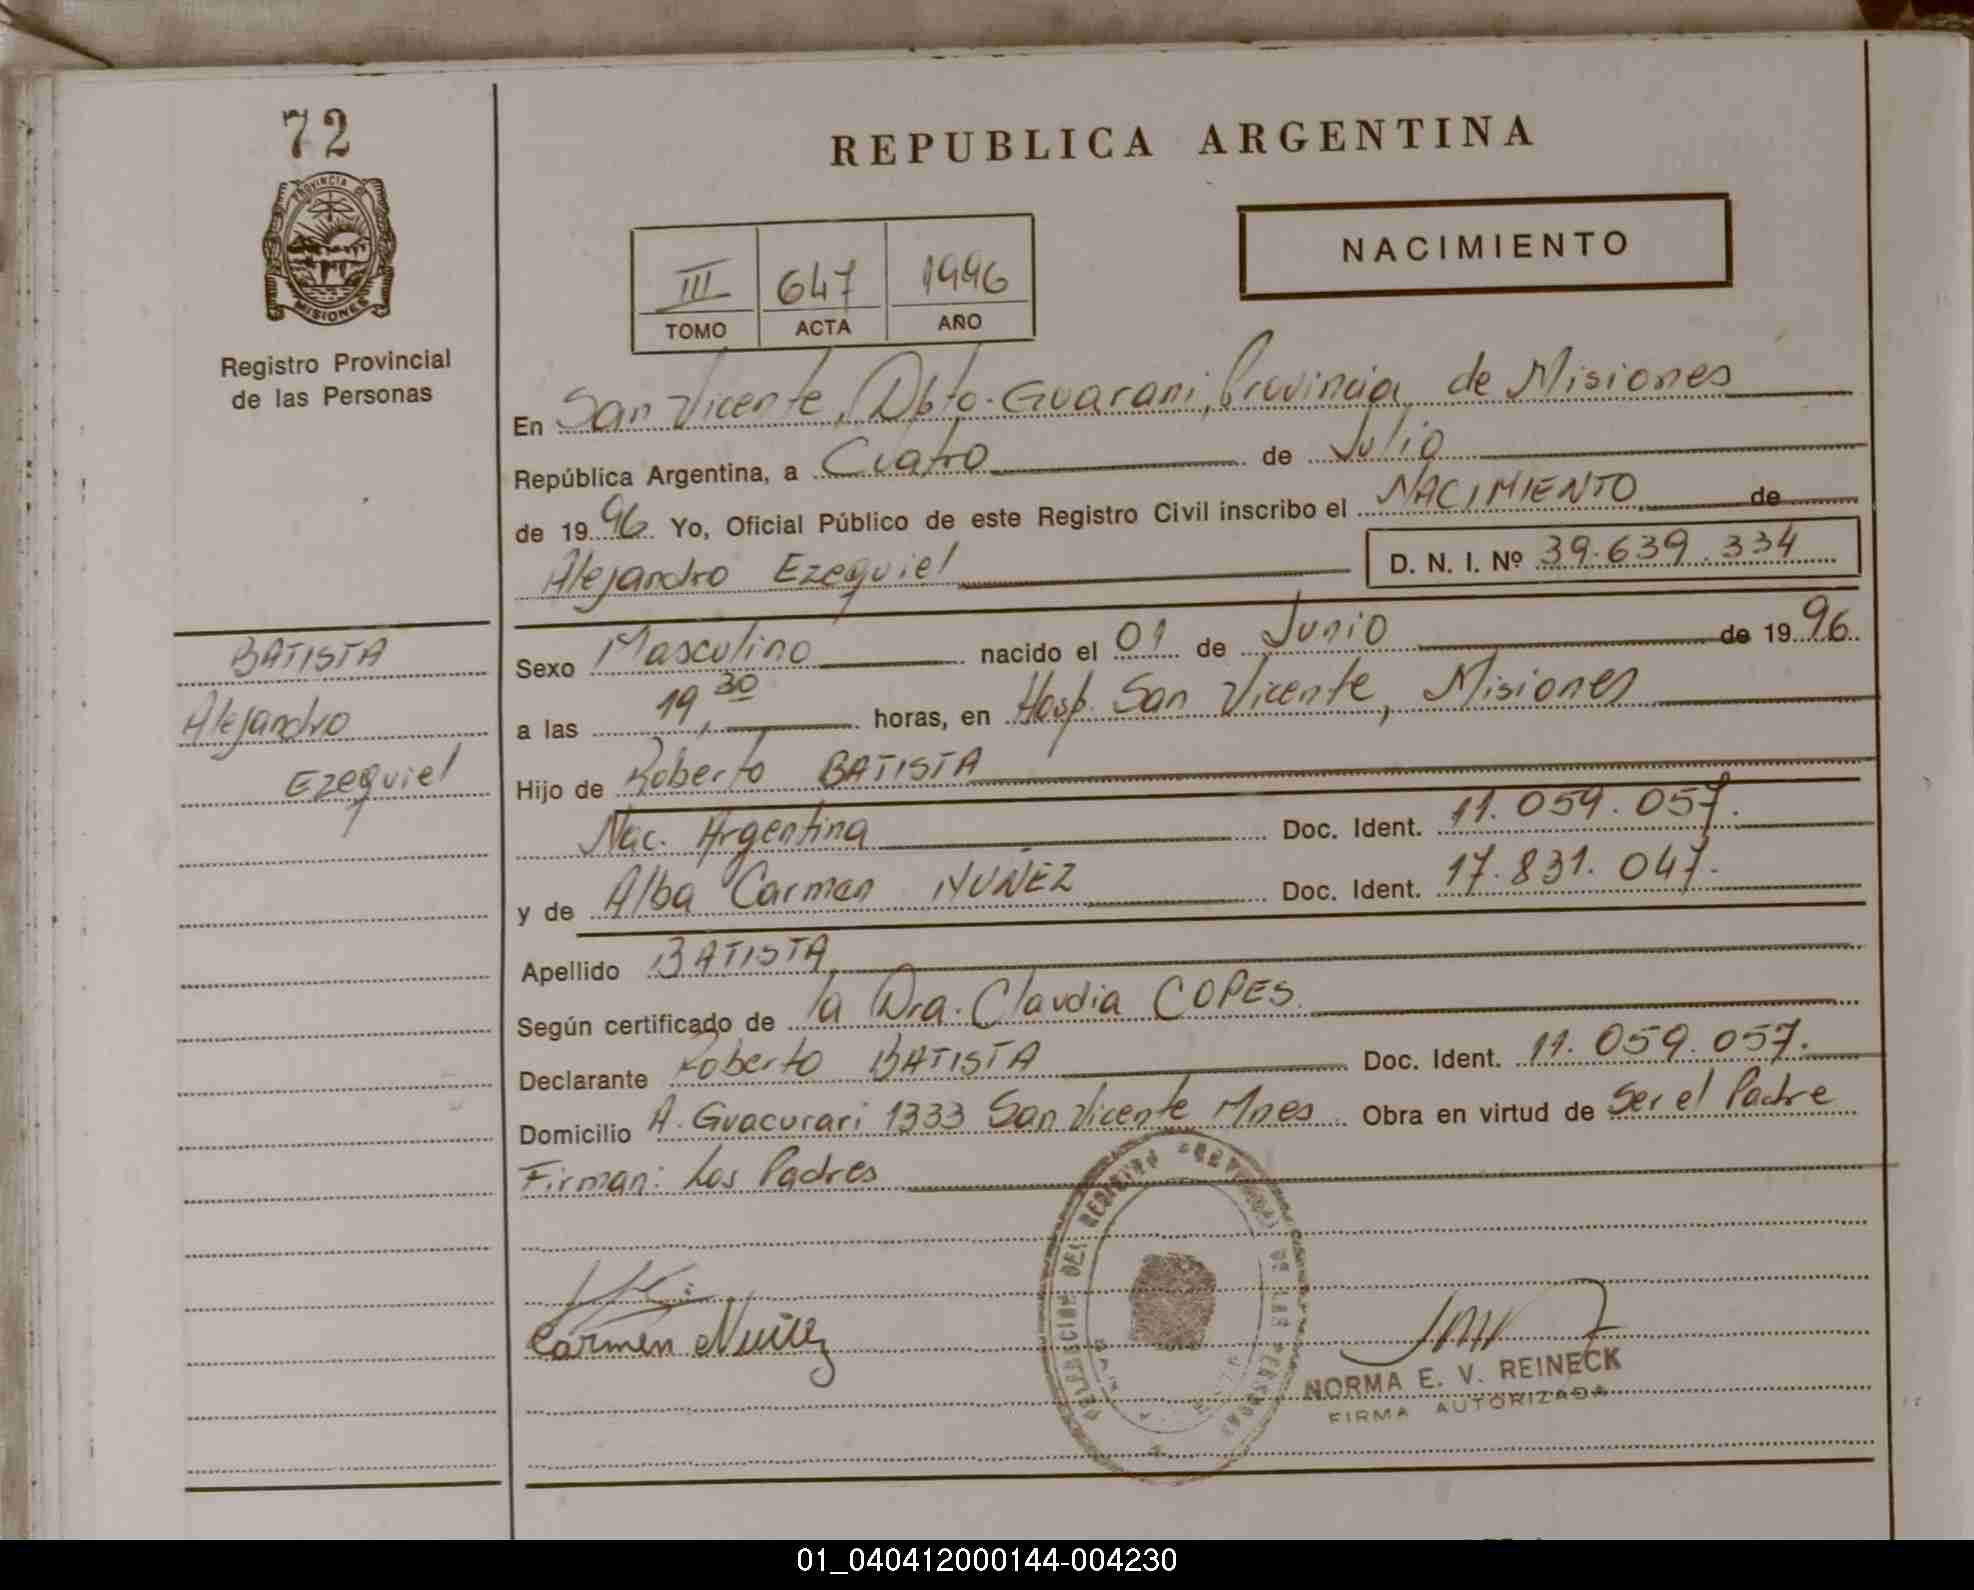 72
PROVINCIA DE
MISIONES
Registro Provincial
de las Personas
BATISTA
Alejandro
Ezequiel
REPUBLICA ARGENTINA
III 647 1996
TOMO ACTA AÑO
NACIMIENTO
En San Vicente, Dpto. Guarani, Provincia de Misiones
República Argentina, a Cuatro de Julio
de 1996 Yo, Oficial Público de este Registro Civil inscribo el NACIMIENTO de
Alejandro Ezequiel D. N. I. Nº 39.639.334
Sexo Masculino nacido el 01 de Junio de 1996.
a las 19,30 horas, en Hosp. San Vicente, Misiones
Hijo de Roberto BATISTA
Nac. Argentina Doc. Ident. 11.059.057.
y de Alba Carmen NUÑEZ Doc. Ident. 17.831.047.
Apellido BATISTA
Según certificado de la Dra. Claudia COPES
Declarante Roberto BATISTA Doc. Ident. 11.059.057.
Domicilio A. Guacurari 1333 San Vicente Mnes Obra en virtud de Ser el Padre
Firman: Los Padres
Carmen Nuñez
DELEGACION DEL REGISTRO PROVINCIAL DE LAS PERSONAS
NORMA E. V. REINECK
FIRMA AUTORIZADA
01_040412000144-004230